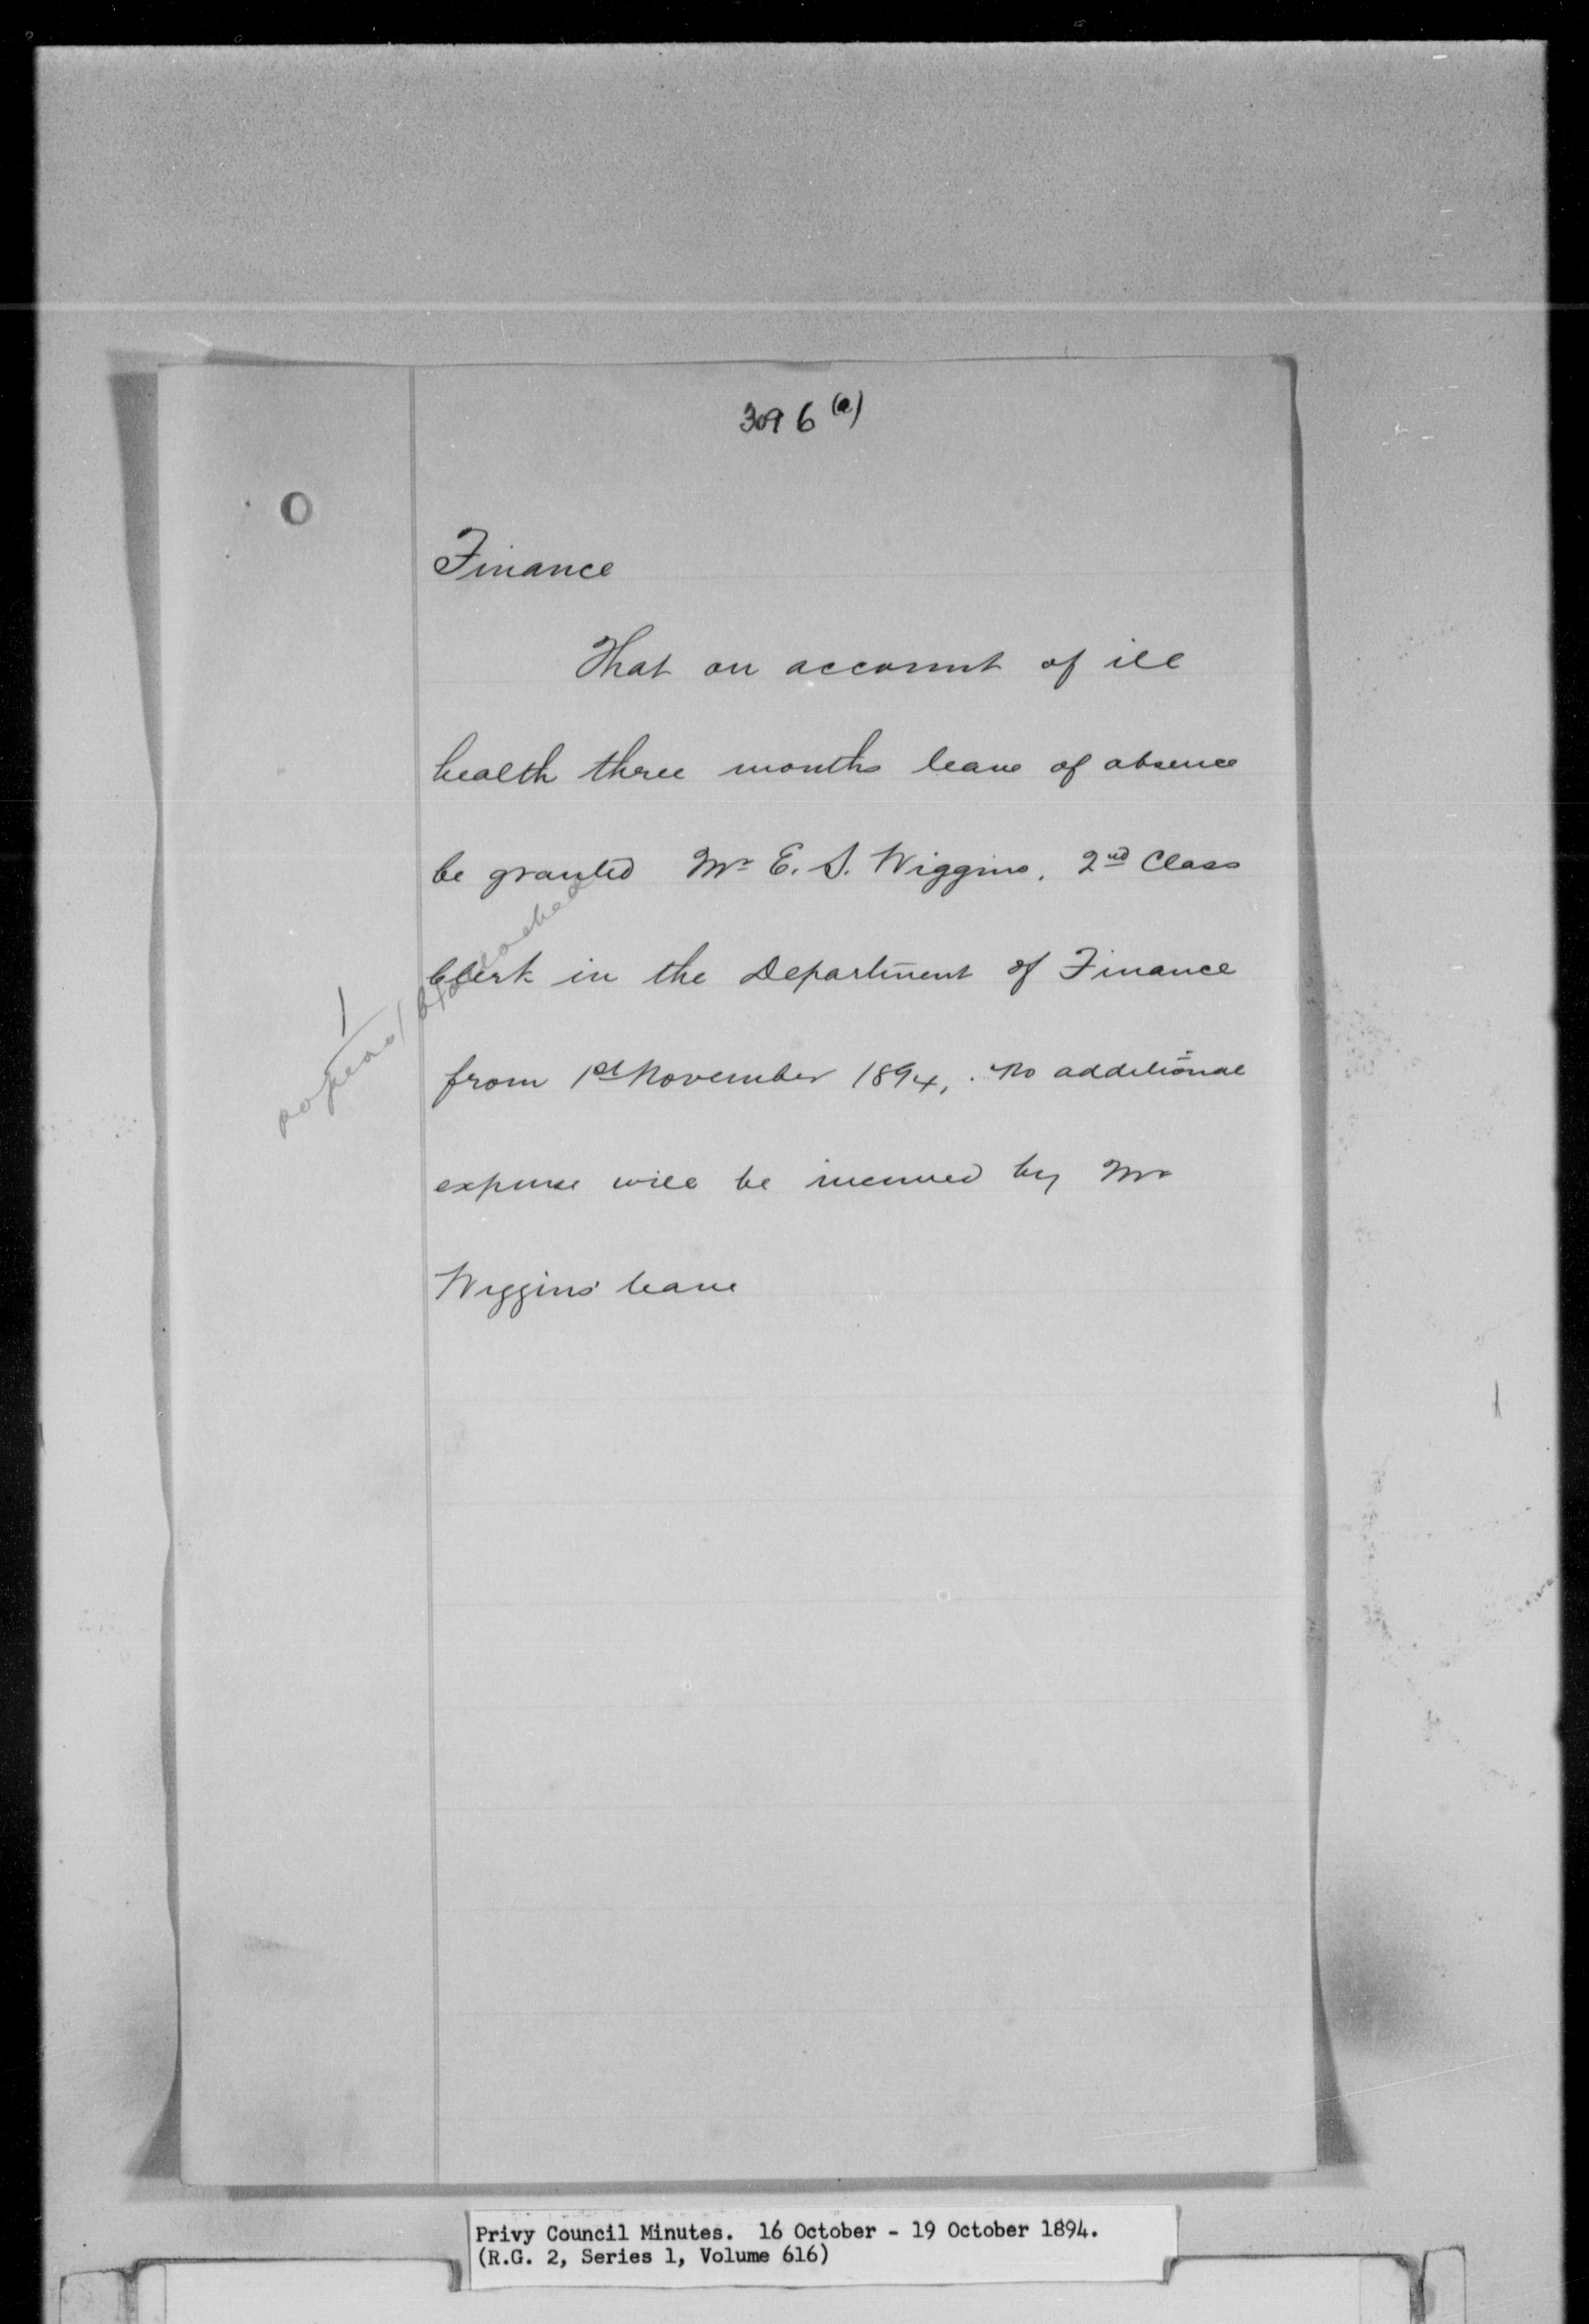 3096 (a)
Finance
That on account of ill
health three months leave of absence
be granted Mr E. S. Wiggins, 2nd Class
Clerk in the Department of Finance
from 1st November 1894, . No additional
expense will be incurred by Mr
Wiggins' leave
Privy Council Minutes. 16 October - 19 October 1894.
(R.G. 2, Series 1, Volume 616)